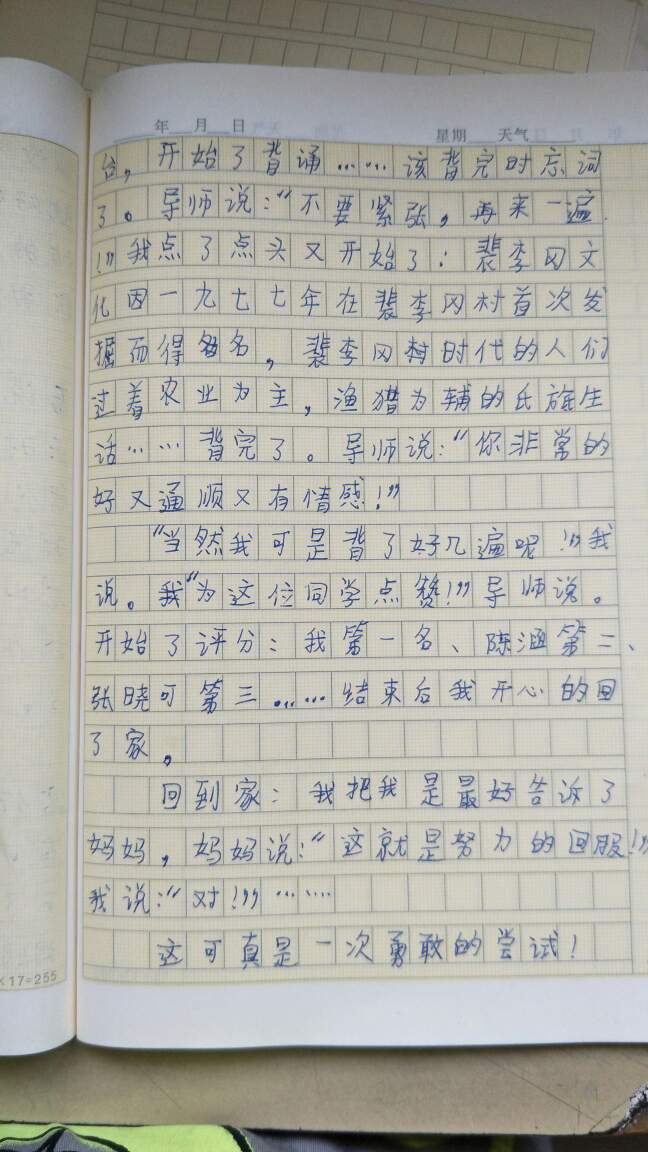 年 月 日
星期 天气
台，开始了背诵……该背完时忘词
了。导师说：“不要紧张，再来一遍
！”我点了点头又开始了：裴李冈文
化因一九七七年在裴李冈村首次发
掘而得名，裴李冈村时代的人们
过着农业为主，渔猎为辅的氏族生
话……背完了。导师说：“你非常的
好又通顺又有情感！”
“当然我可是背了好几遍呢！”我
说。我“为这位同学点赞！”导师说。
开始了评分：我第一名、陈涵第二、
张晓可第三……结束后我开心的回
了家。
回到家：我把我是最好告诉了
妈妈，妈妈说：“这就是努力的回服！”
我说：“对！”……
这可真是一次勇敢的尝试！
×17=255